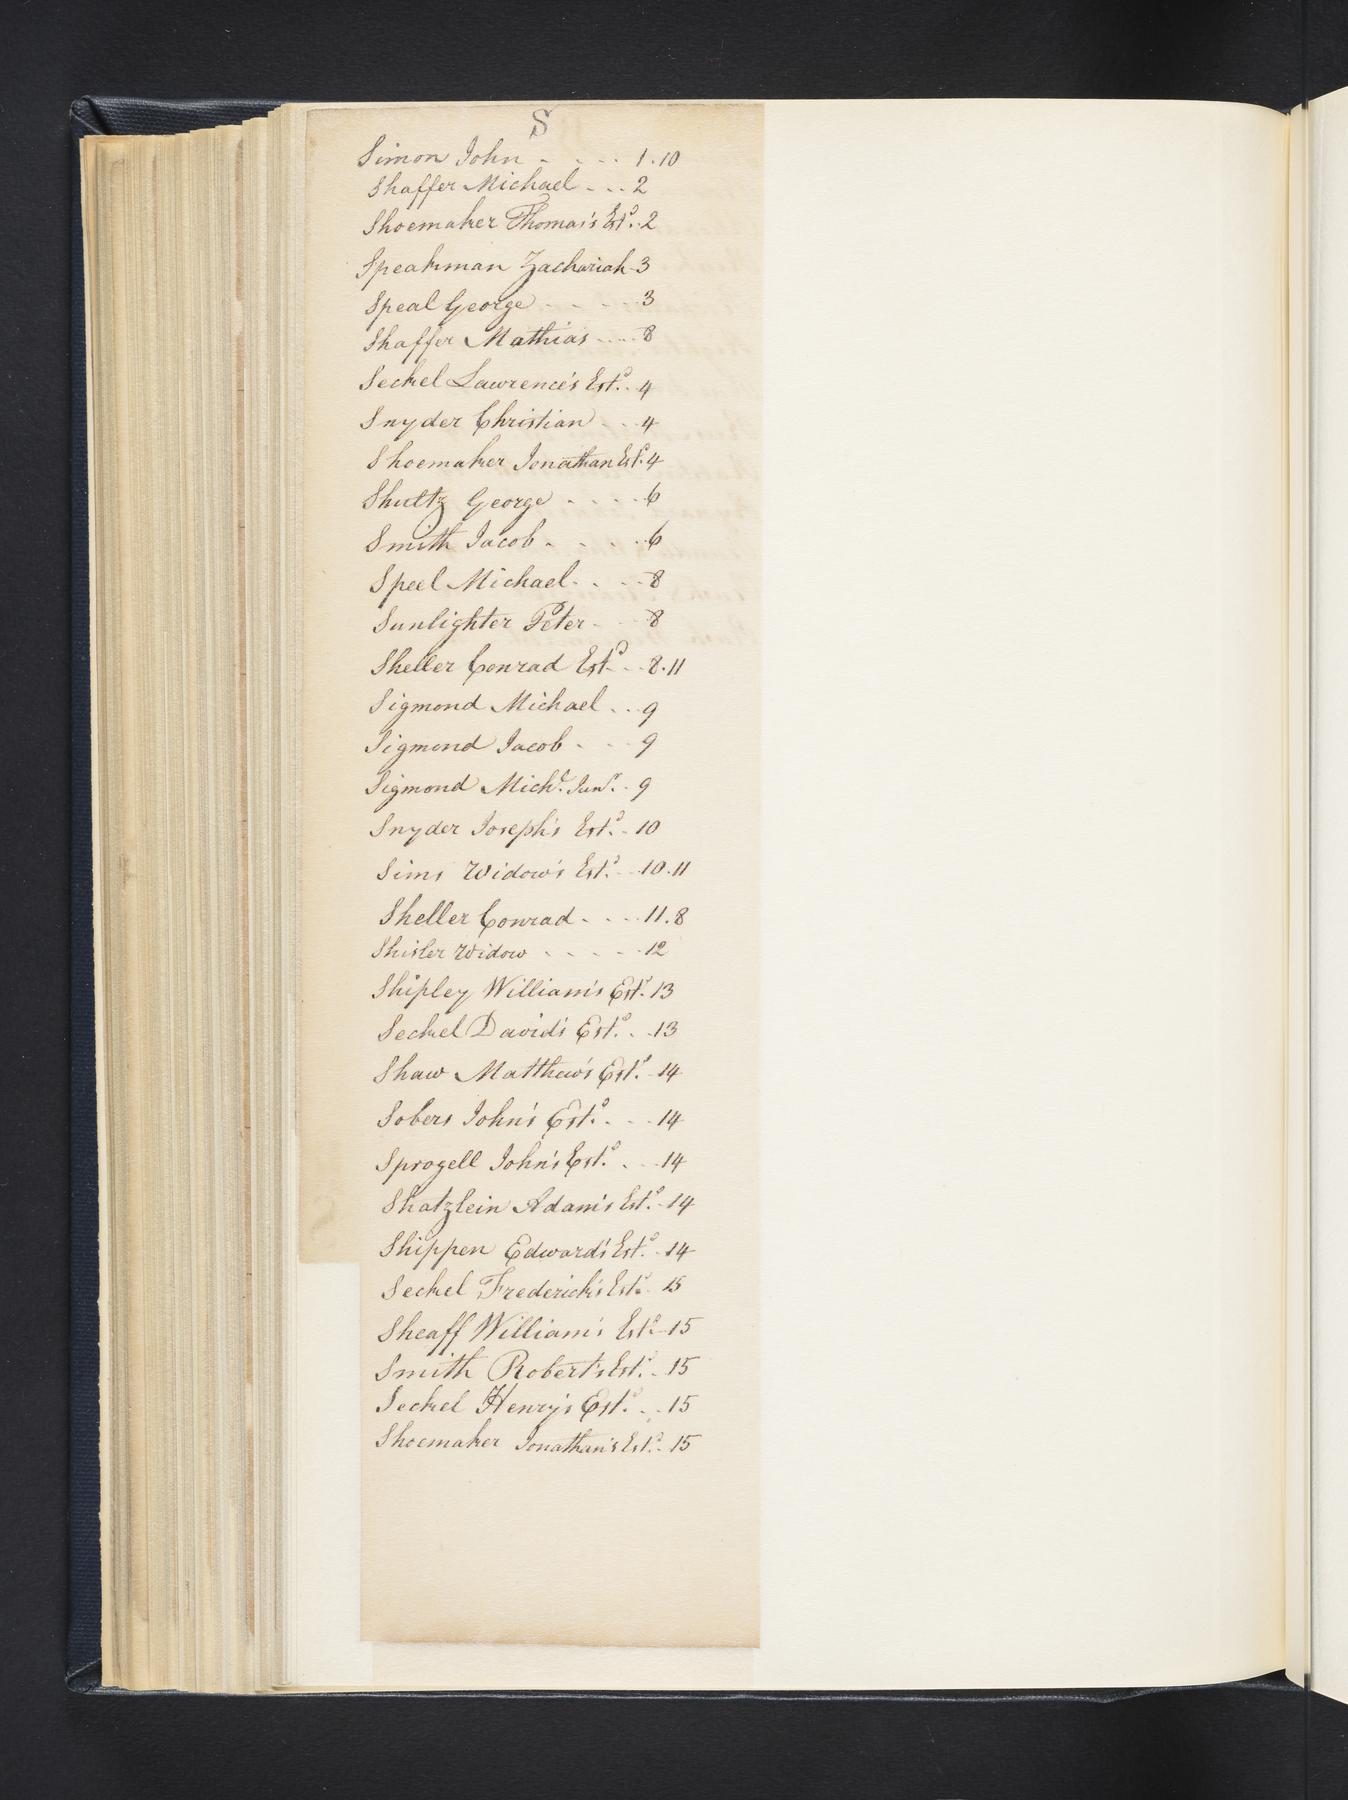 S
Simon John - - - - 1.10
Shaffer Michael - - - 2
Shoemaker Thomas's Est.e - 2
Speakman Zachariah - 3
Speal George - - - - - 3
Shaffer Mathias - - - - 8
Seckel Lawrence's Est.e - 4
Snyder Christian - - - 4
Shoemaker Jonathan Est.e 4
Shultz George - - - - 6
Smith Jacob - - - - 6
Speel Michael - - - - 8
Sunlighter Peter - - - 8
Sheller Conrad Est.e - - 8.11
Sigmond Michael - - - 9
Sigmond Jacob - - - 9
Sigmond Mich.l Jun.r - 9
Snyder Joseph's Est.e - 10
Sims Widow's Est.e - - 10.11
Sheller Conrad - - - - 11.8
Shisler Widow - - - - - 12
Shipley William's Est.e 13
Seckel David's Est.e - - 13
Shaw Matthew's Est.e - 14
Sobers John's Est.e - - - 14
Sprogell John's Est.e - - 14
Shatzlein Adam's Est.e - 14
Shippen Edward's Est.e - 14
Seckel Frederick's Est.e - 15
Sheaff William's Est.e - 15
Smith Robert's Est.e - 15
Seckel Henry's Est.e - - 15
Shoemaker Jonathan's Est.e - 15